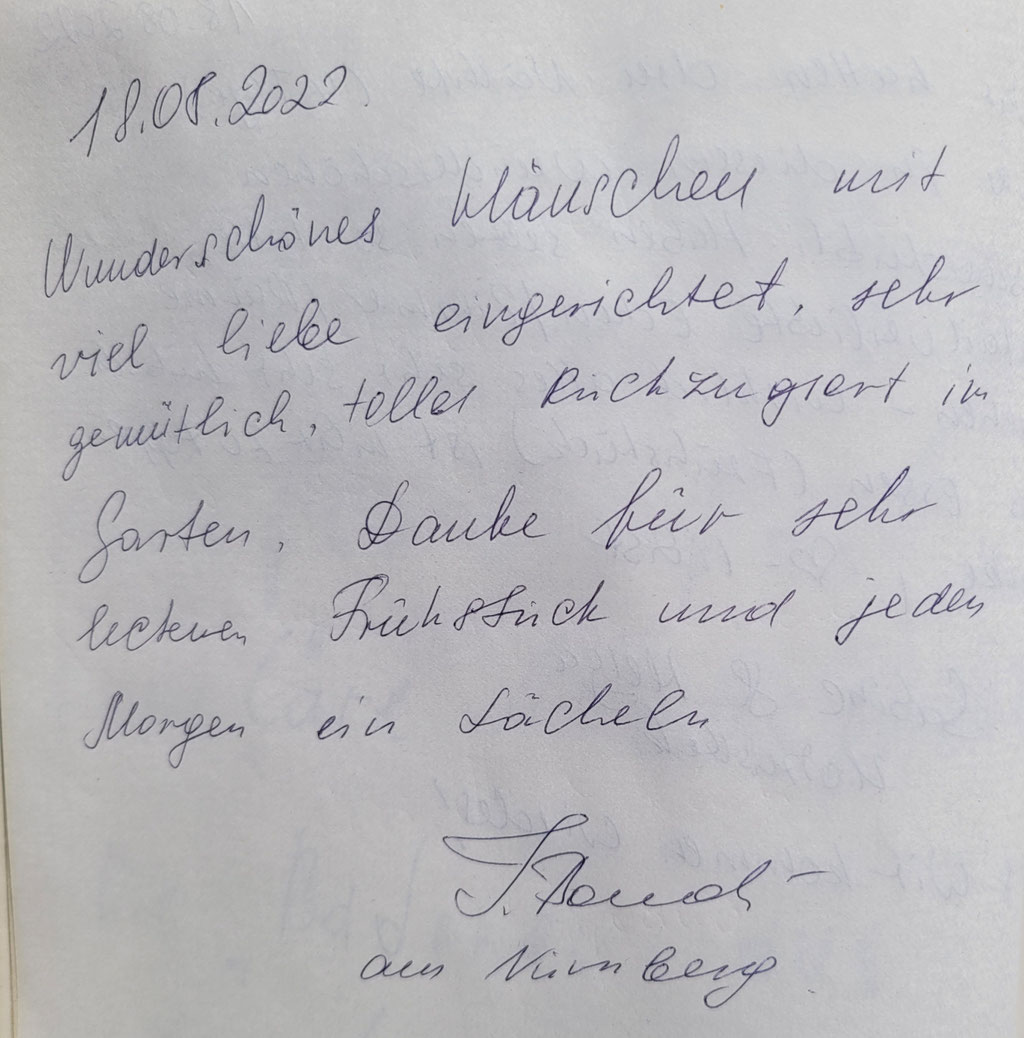 18.08.2022
Wunderschönes Häuschen mit
viel liebe eingerichtet, sehr
gemütlich, tolles Rückzugsort im
Garten. Danke für sehr
leckeren Frühstück und jeden
Morgen ein Lächeln
aus Nürnberg